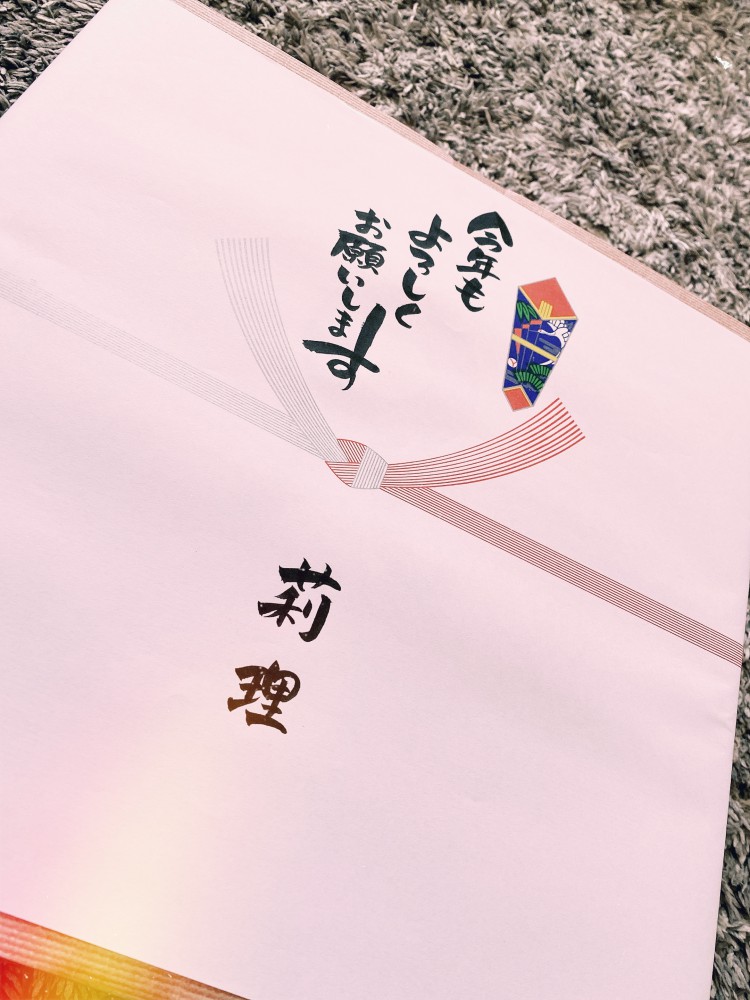 今年も
よろしく
お願いします
莉理